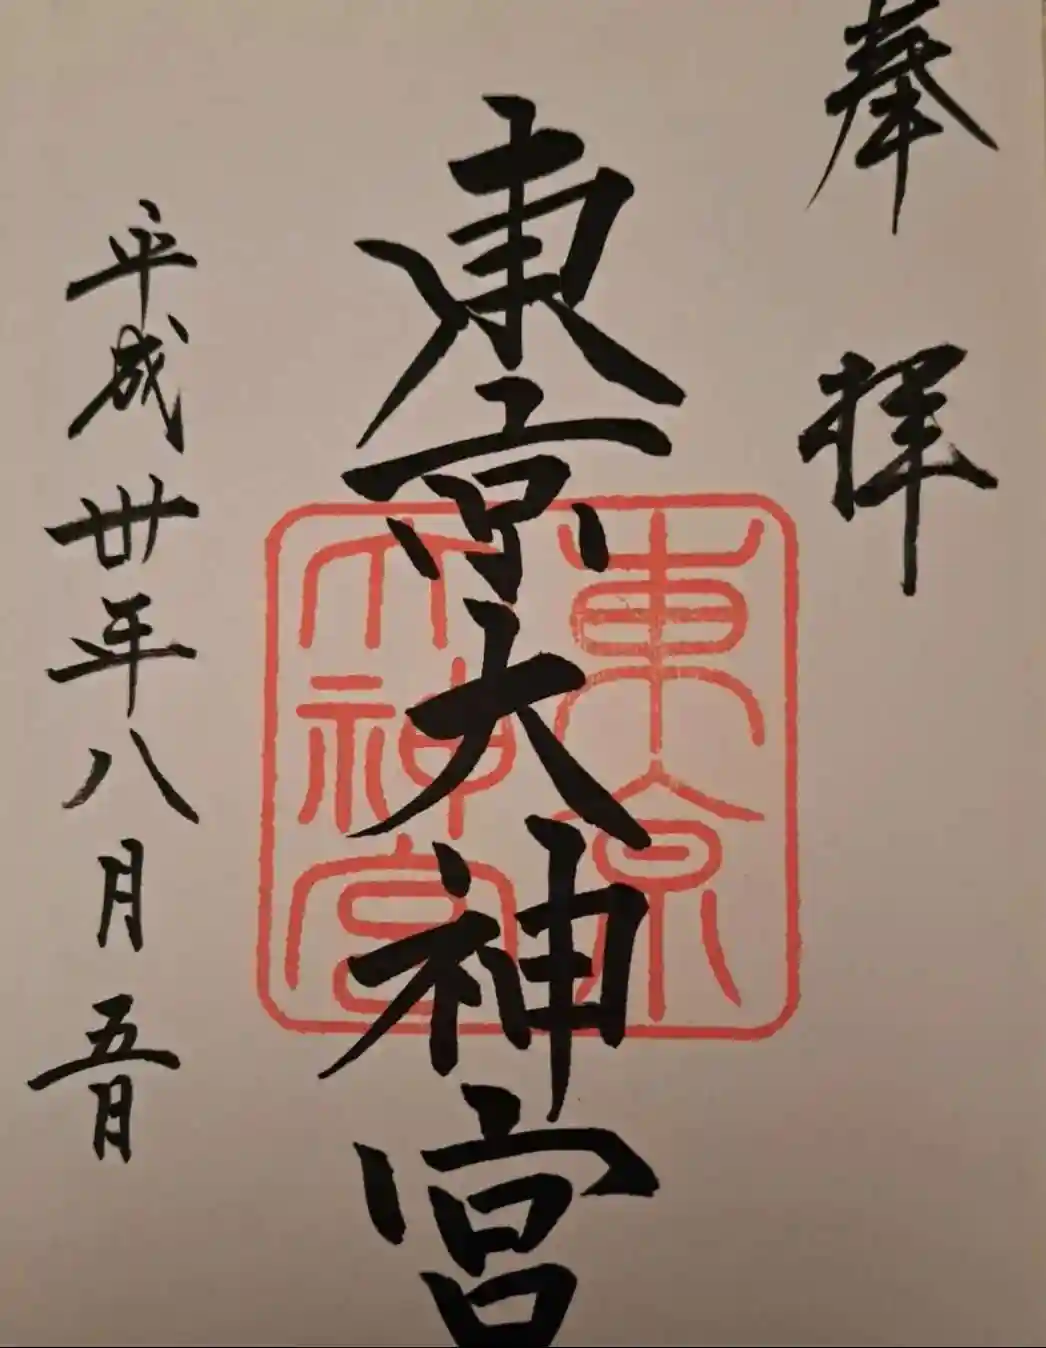 奉拝
東京大神宮
東京
大神宮
平成卅年八月五日